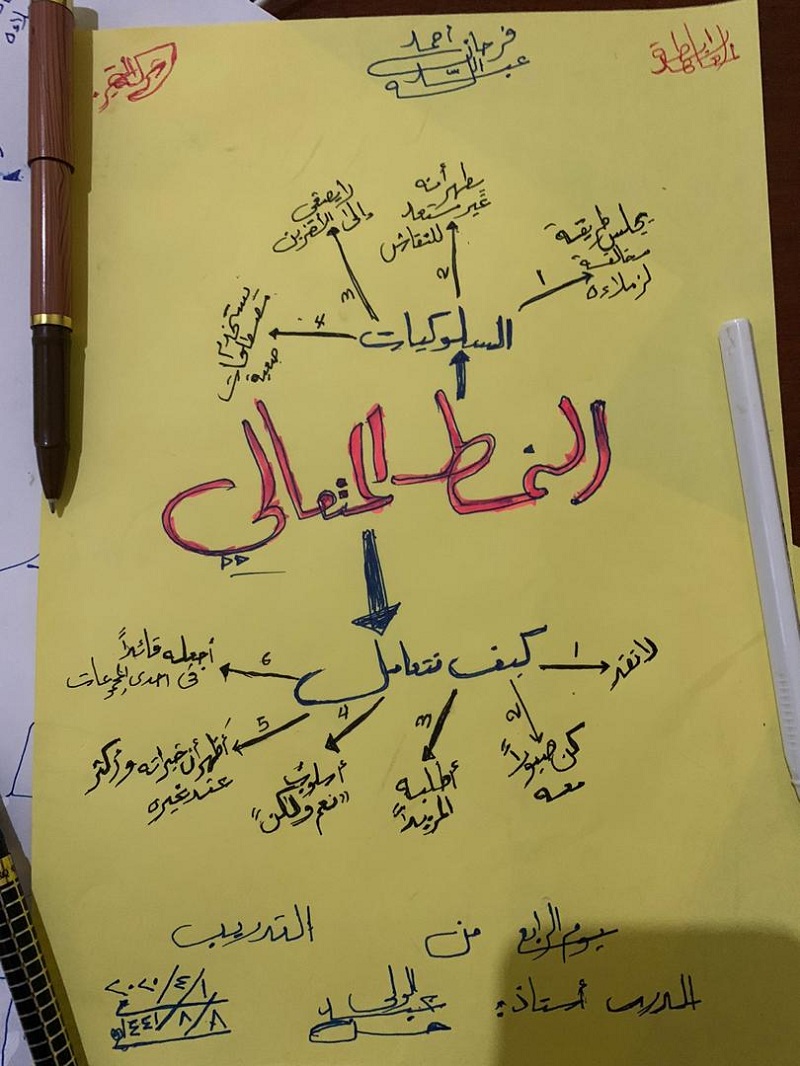 فرحان أحمد
عبد الله
يجلس طريقة
مخالفة
لزملاءه
1
يظهر أنه
غير مستعد
للنقاش
2
لا يصغي
إلى الآخرين
3
يستخدم
مصطلحات
صعبة
4
السلوكيات
النمط المتعالي
كيف نتعامل
لا تنقد
1
كن صبوراً
معه
2
أطلبه
المزيداً
3
أسلوب
"نعم ولكن"
4
أظهر أن خبراته وأكثر
عند غيره
5
أجعله قائداً
في احدى المجموعات
6
يوم الرابع من التدريب
المدرب أستاذ: عبد الولي
حسن
٢٠٢٠/٤/١
١٤٤١/٨/٨